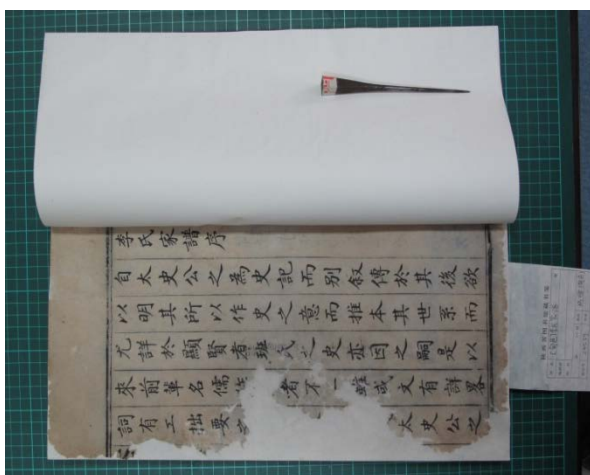 李氏家譜序
自太史公之為史記而別叙傳於其後欲
以明其所以作史之意而推本其世系而
尤詳於顯賢者班氏之史亦因之嗣是以
來前輩名儒 者不一雖或文有詳畧
詞有工拙要 太史公之